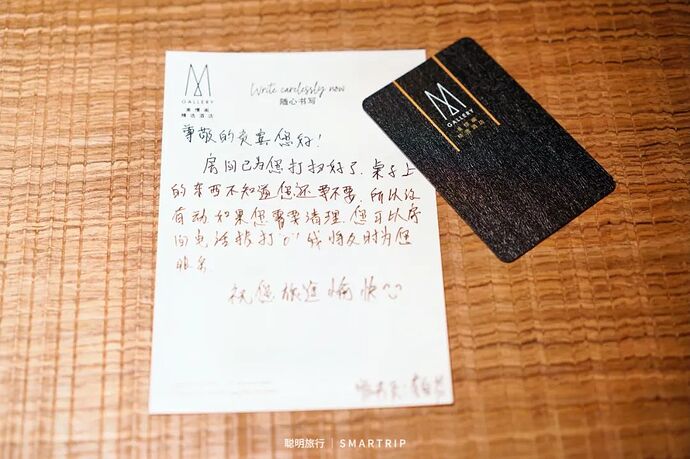 M
GALLERY
美憬阁
精选酒店
Write carelessly now
随心书写
尊敬的贵宾您好！
房间已为您打扫好了，桌子上
的东西不知道您还要不要，所以没
有动如果您需要清理，您可以房
间电话拨打"0"我将及时为您
服务。
祝您旅途愉快
服务员：
M
GALLERY
美憬阁
精选酒店
聪明旅行 | SMARTRIP